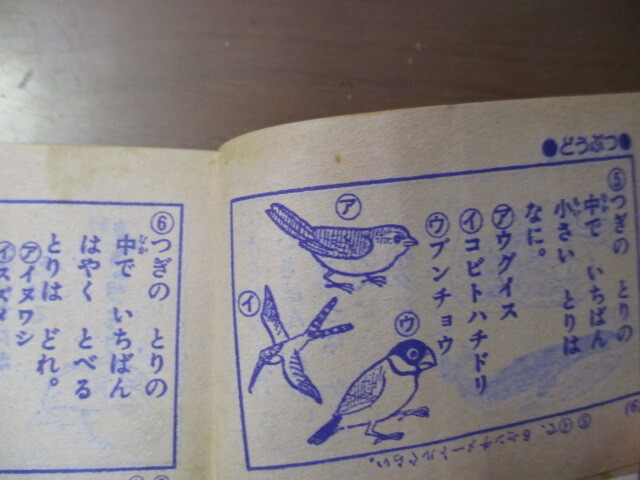 ●どうぶつ●
⑤つぎの とりの
中で いちばん
小さい とりは
なに。
㋐ウグイス
㋑コビトハチドリ
㋒ブンチョウ
㋐
㋑
㋒
⑤㋑で、6センチメートルぐらい。
⑥つぎの とりの
中で いちばん
はやく とべる
とりは どれ。
㋐イヌワシ
㋑スズメ